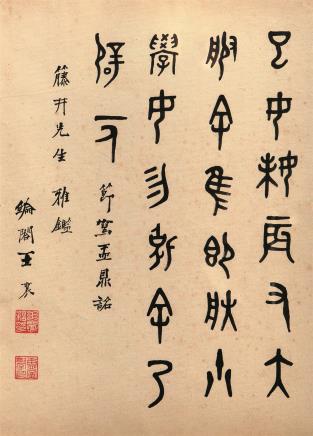 巳女妹辰又大
服余隹即朕小
學女勿余乃
辟一人
節寫盂鼎銘
藤井先生 雅鑑
綸閣王襄